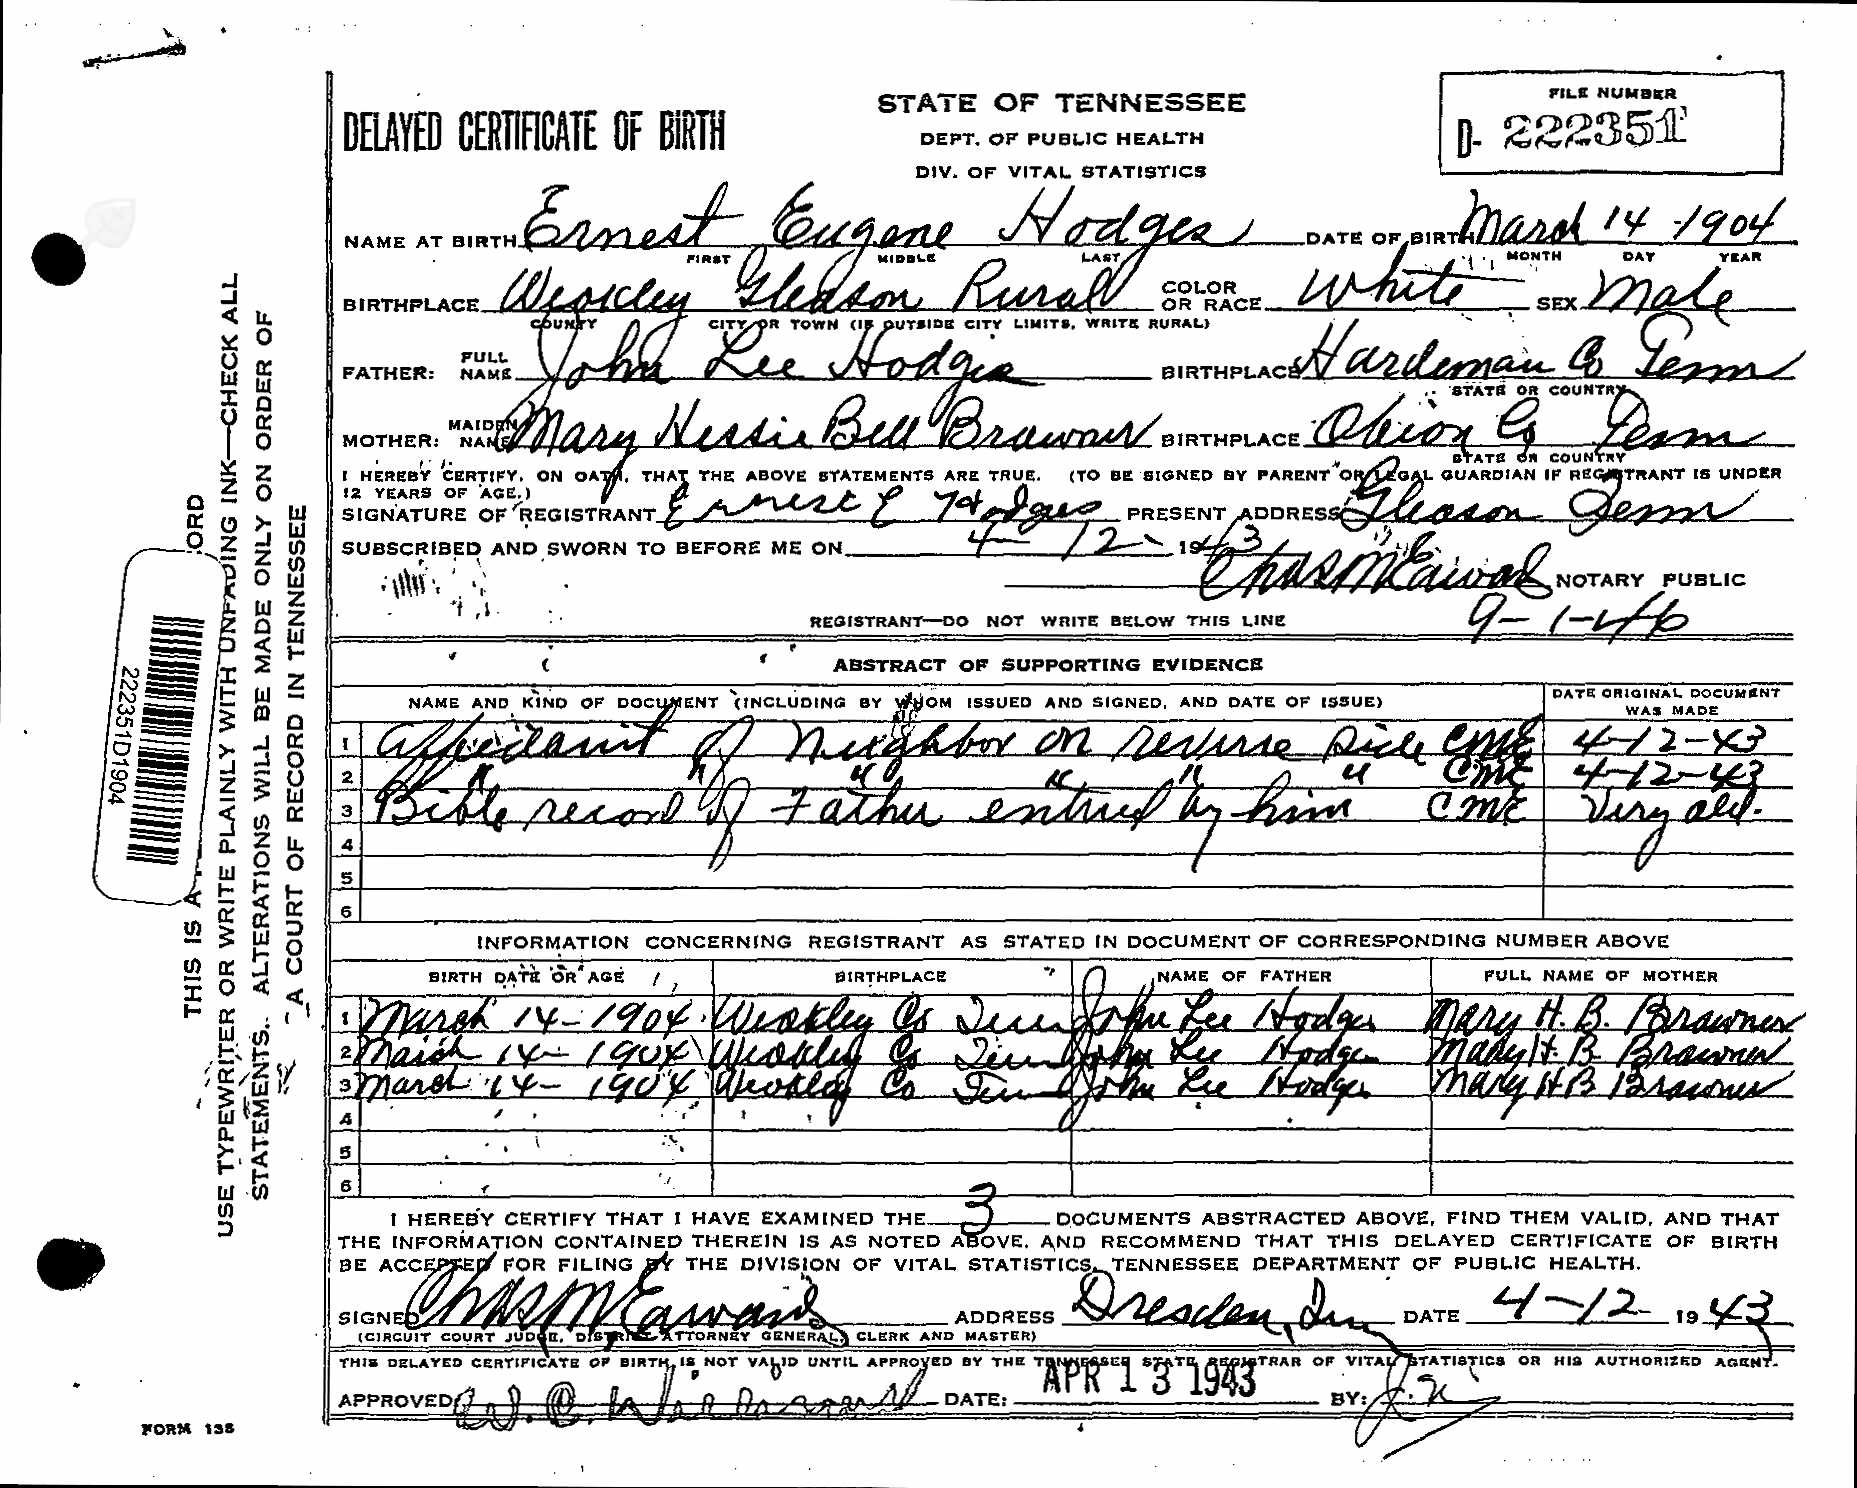 DELAYED CERTIFICATE OF BIRTH
STATE OF TENNESSEE
DEPT. OF PUBLIC HEALTH
DIV. OF VITAL STATISTICS
FILE NUMBER
D- 222351
NAME AT BIRTH Ernest Eugene Hodges DATE OF BIRTH March 14 - 1904
FIRST MIDDLE LAST MONTH DAY YEAR
BIRTHPLACE Weakley Gleason Rural COLOR OR RACE White SEX Male
COUNTY CITY OR TOWN (IF OUTSIDE CITY LIMITS, WRITE RURAL)
FATHER: FULL NAME John Lee Hodges BIRTHPLACE Hardeman Co Tenn
STATE OR COUNTRY
MOTHER: MAIDEN NAME Mary Hessie Bell Brawner BIRTHPLACE Obion Co Tenn
STATE OR COUNTRY
I HEREBY CERTIFY, ON OATH, THAT THE ABOVE STATEMENTS ARE TRUE. (TO BE SIGNED BY PARENT OR LEGAL GUARDIAN IF REGISTRANT IS UNDER
12 YEARS OF AGE.)
SIGNATURE OF REGISTRANT Ernest E Hodges PRESENT ADDRESS Gleason Tenn
SUBSCRIBED AND SWORN TO BEFORE ME ON 4 - 12 - 1943
Chas M Edwards NOTARY PUBLIC
REGISTRANT—DO NOT WRITE BELOW THIS LINE 9-1-46
ABSTRACT OF SUPPORTING EVIDENCE
NAME AND KIND OF DOCUMENT (INCLUDING BY WHOM ISSUED AND SIGNED, AND DATE OF ISSUE) DATE ORIGINAL DOCUMENT WAS MADE
1 Affidavit of Neighbor on reverse side CME 4-12-43
2 " " " " " " CME 4-12-43
3 Bible record of Father entred by him CME Very old.
4
5
6
INFORMATION CONCERNING REGISTRANT AS STATED IN DOCUMENT OF CORRESPONDING NUMBER ABOVE
BIRTH DATE OR AGE BIRTHPLACE NAME OF FATHER FULL NAME OF MOTHER
1 March 14-1904 Weakley Co Tenn John Lee Hodges Mary H. B. Brawner
2 March 14-1904 Weakley Co Tenn John Lee Hodges Mary H. B. Brawner
3 March 14-1904 Weakley Co Tenn John Lee Hodges Mary H B Brawner
4
5
6
I HEREBY CERTIFY THAT I HAVE EXAMINED THE 3 DOCUMENTS ABSTRACTED ABOVE, FIND THEM VALID, AND THAT
THE INFORMATION CONTAINED THEREIN IS AS NOTED ABOVE, AND RECOMMEND THAT THIS DELAYED CERTIFICATE OF BIRTH
BE ACCEPTED FOR FILING BY THE DIVISION OF VITAL STATISTICS, TENNESSEE DEPARTMENT OF PUBLIC HEALTH.
SIGNED Chas M Edwards ADDRESS Dresden, Tenn DATE 4-12- 1943
(CIRCUIT COURT JUDGE, DISTRICT ATTORNEY GENERAL, CLERK AND MASTER)
THIS DELAYED CERTIFICATE OF BIRTH IS NOT VALID UNTIL APPROVED BY THE TENNESSEE STATE REGISTRAR OF VITAL STATISTICS OR HIS AUTHORIZED AGENT.
APPROVED W. C. DATE: APR 13 1943 BY:
FORM 135
THIS IS A ORD
USE TYPEWRITER OR WRITE PLAINLY WITH UNFADING INK—CHECK ALL
STATEMENTS. ALTERATIONS WILL BE MADE ONLY ON ORDER OF
A COURT OF RECORD IN TENNESSEE
222351D1904